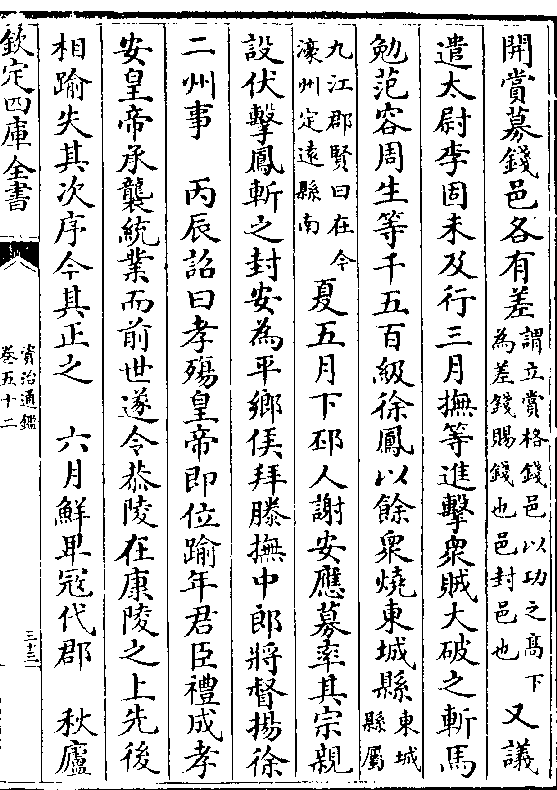 開賞募錢邑各有差謂立賞格錢邑以功之髙下為差錢賜錢也邑封邑也又議
遣太尉李固未及行三月撫等進擊衆賊大破之斬馬
勉范容周生等千五百級徐鳳以餘衆燒東城縣東城縣屬
九江郡賢曰在今濠州定遠縣南夏五月下邳人謝安應募率其宗親
設伏擊鳳斬之封安為平鄉侯拜滕撫中郎將督揚徐
二州事 丙辰詔曰孝殤皇帝即位踰年君臣禮成孝
安皇帝承襲統業而前世遂令恭陵在康陵之上先後
相踰失其次序今其正之 六月鮮卑冦代郡 秋廬
欽定四庫全書
資治通鑑
卷五十二
三十三